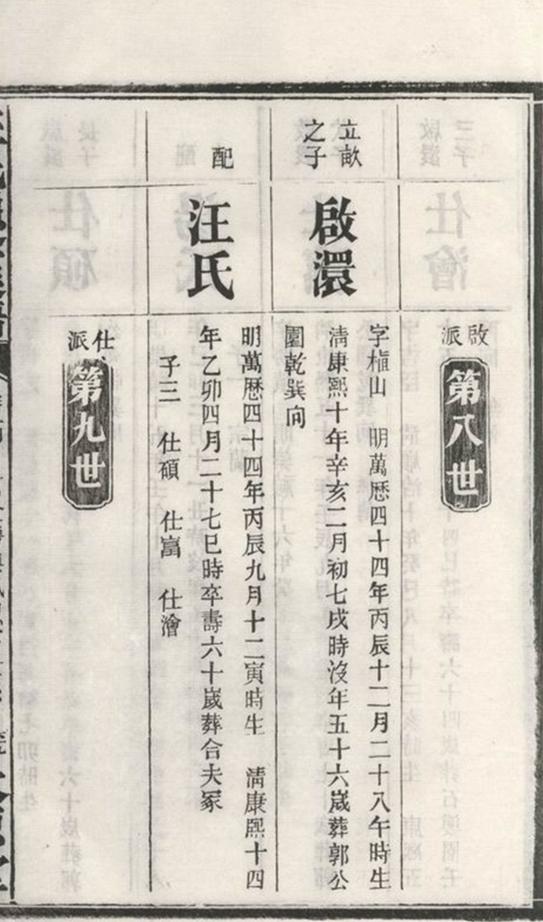 啟派
第八世
立畝之子
啟澴
字植山 明萬歷四十四年丙辰十二月二十八午時生
清康熙十年辛亥二月初七戌時沒年五十六歲葬郭公
圍乾巽向
配
汪氏
明萬歷四十四年丙辰九月十二寅時生 清康熙十四
年乙卯四月二十七巳時卒壽六十歲葬合夫冢
子三 仕碩 仕富 仕澮
仕派
第九世